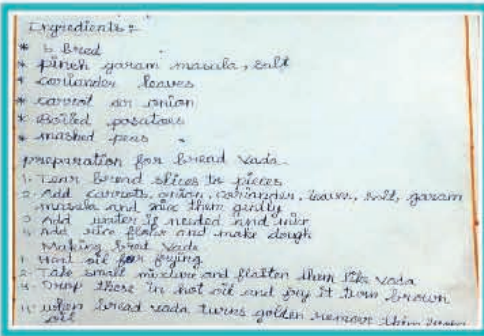 Ingredients :
* 5 bred
* pinch garam masala, salt
* coriander leaves
* carrot or onion
* Boiled potatoes
* mashed peas
preparation for bread vada
1. Tear bread slices to pieces
2. Add carrots, onion, coriander, leaves, salt, garam
masala and mix them gently
3. Add water if needed and mix
4. Add rice flour and make dough
Making bred vada
1. Heat oil for frying
2. Take small mixture and flatten them like vada
4. Drop these in hot oil and fry it turn brown
4. when bread vada turns golden remove them from
oil